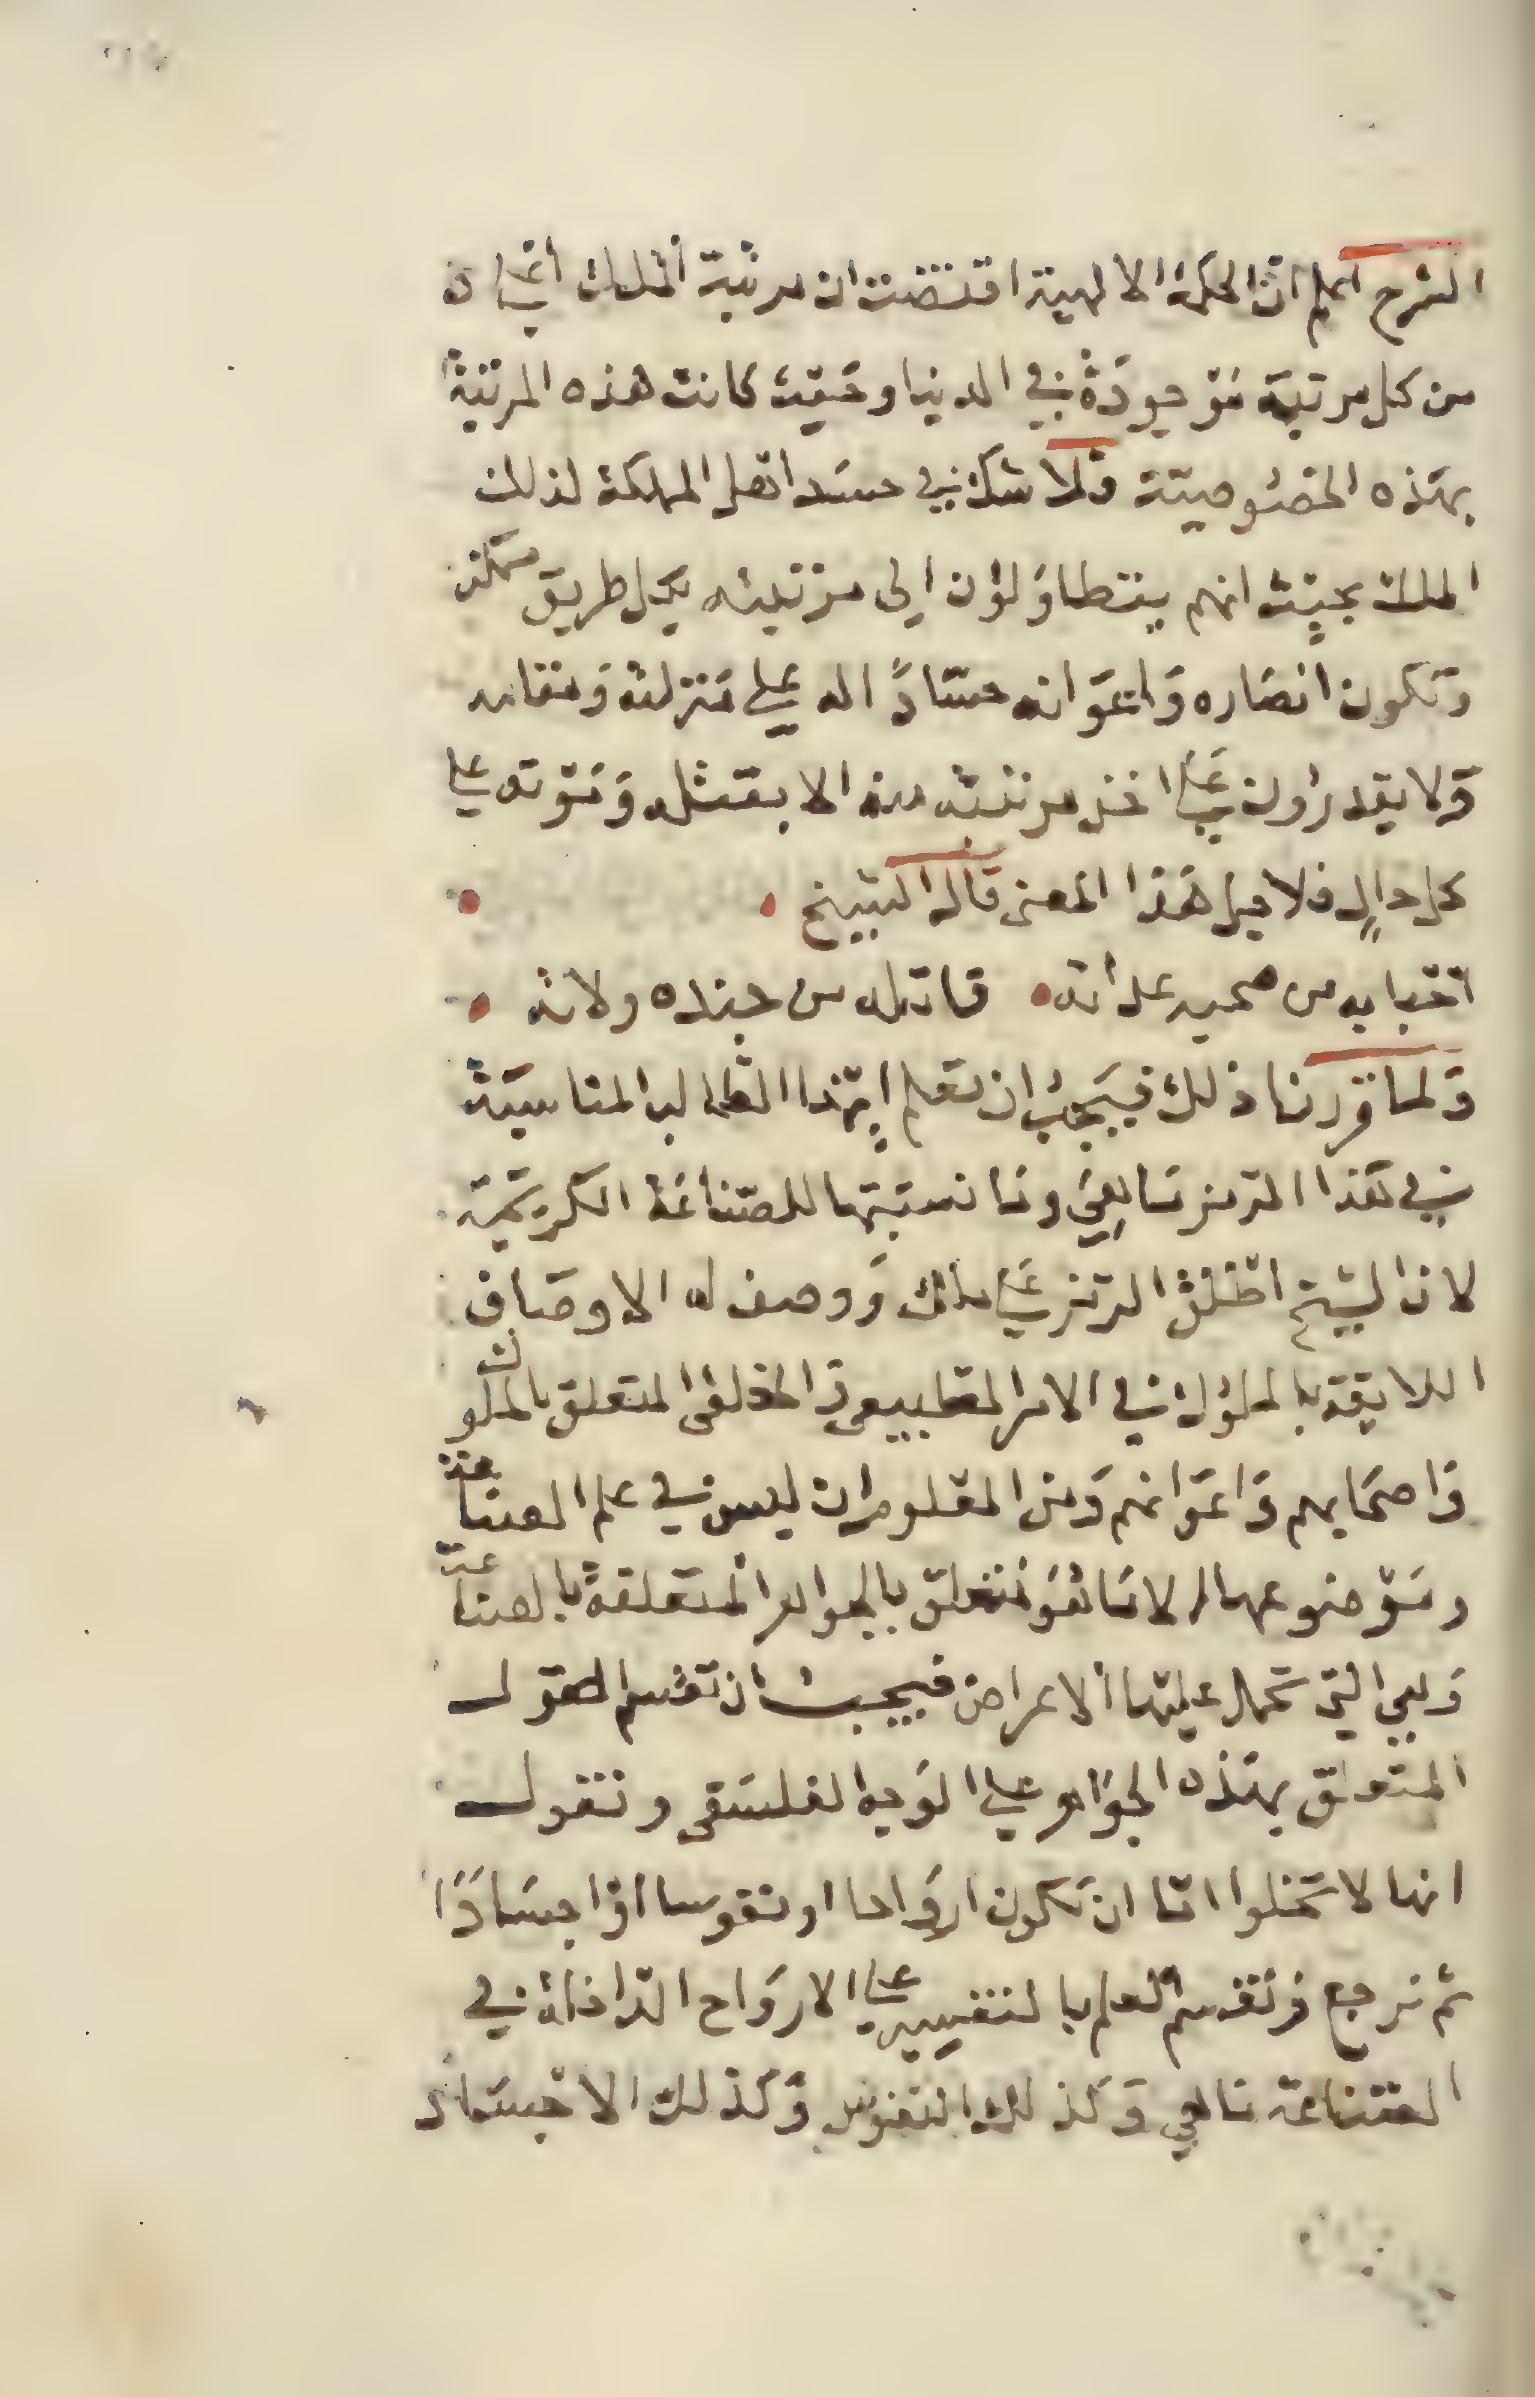 الشرح اعلم ان الحكمة الالهية اقتضت ان مرتبة الملك أعلى
من كل مرتبة موجودة في الدنيا وحيث كانت هذه المرتبة
بهذه الخصوصية فلا شك في حسد اهل المملكة لذلك
الملك بحيث انهم يتطاولون الى مرتبته بكل طريق ممكن
وتكون انصاره واعوانه حسادا له على منزلته ومقامه
ولا يقدرون على اخذ مرتبته منه الا بقتله وموته على
كل حال فلاجل هذا المعنى قال الشيخ
احبابه من صحبه عداته قاتله من جنده ولاته
ولما قررنا ذلك فيجب ان تعلم ايهذا الطالب المناسبة
في هذا الرمز ما هي وما نسبتها للصناعة الكريمة
لان الشيخ اطلق الرمز على ملك ووصف له الاوصاف
اللايقة بالملوك في الامر الطبيعي والخلقى المتعلق بالملوك
واصحابهم واعوانهم ومن المعلوم ان ليس في علم الصناعة
وموضوعها الا ما هو متعلق بالجواهر المتعلقة بالصناعة
وهي التي تحمل عليها الاعراض فيجب ان تقسم القول
المتعلق بهذه الجواهر على الوجه الفلسفى ونقول
انها لا تخلوا اما ان تكون ارواحا او نفوسا او اجسادا
ثم نرجع ونقسم العلم بالتفسير على الارواح الداخلة في
الصناعة ما هي وكذلك النفوس وكذلك الاجساد